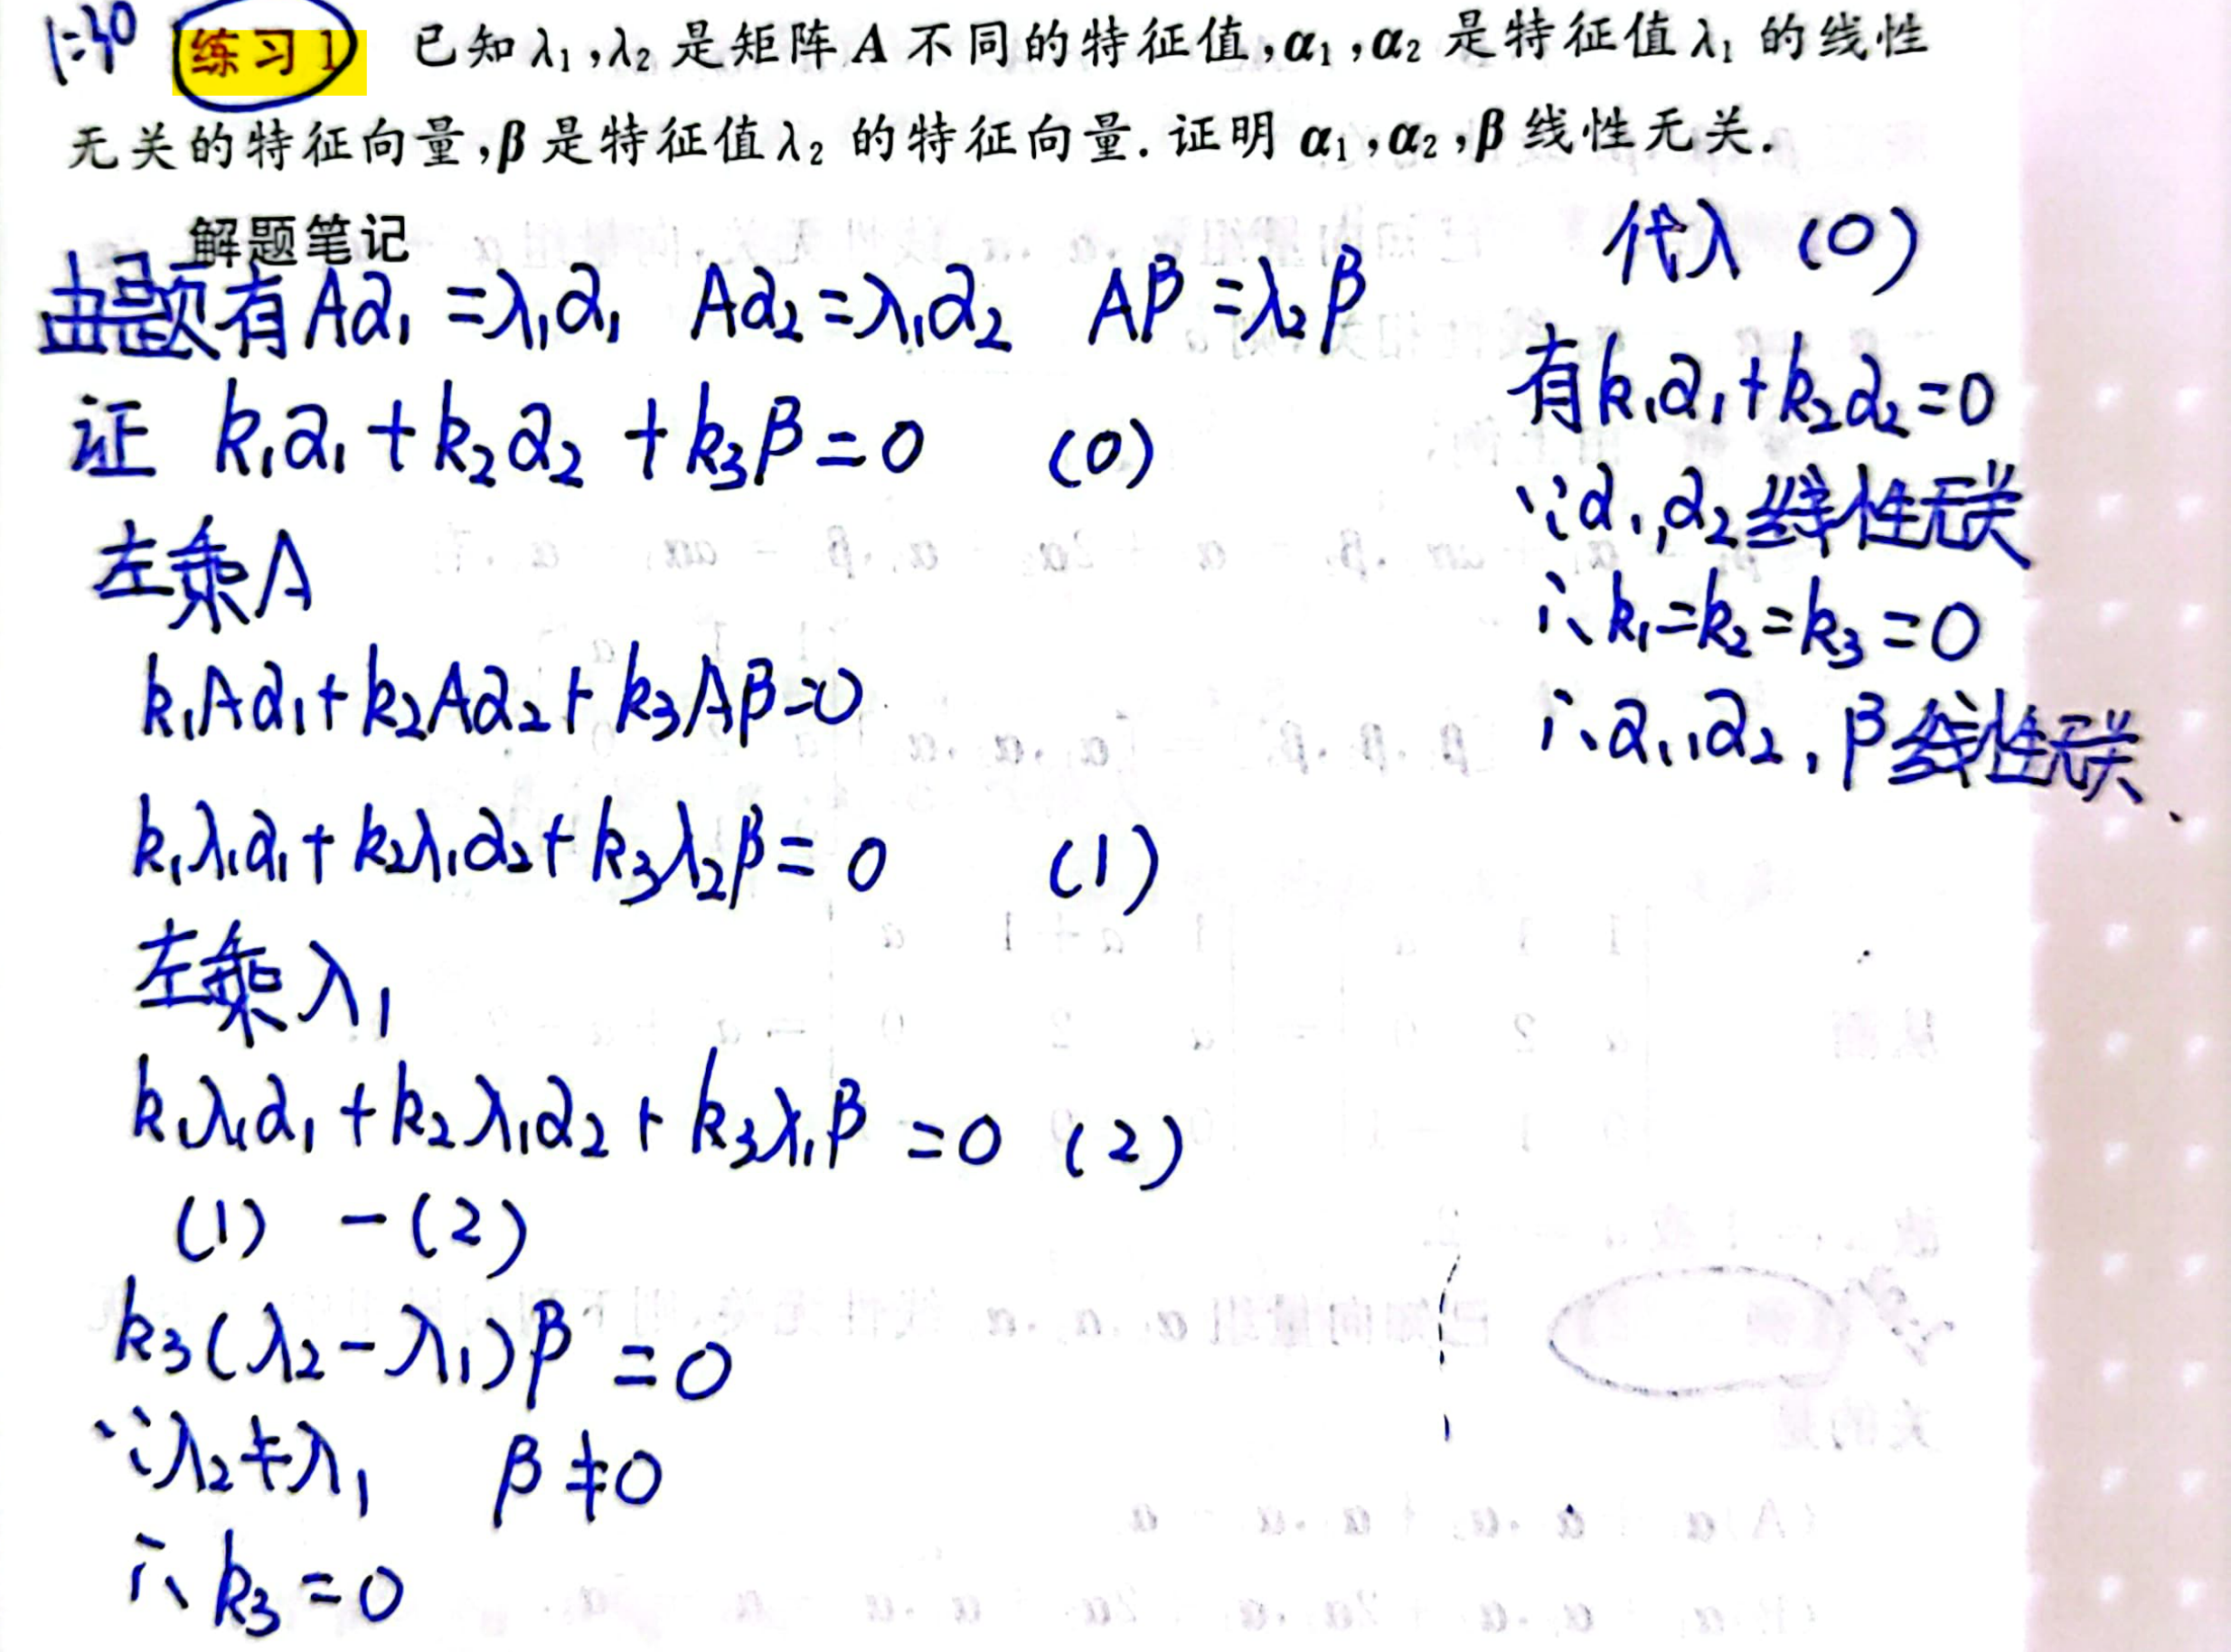 1:30 练习1 已知λ₁,λ₂是矩阵A不同的特征值,α₁,α₂是特征值λ₁的线性
无关的特征向量,β是特征值λ₂的特征向量.证明α₁,α₂,β线性无关.
解题笔记
由题有Aα₁=λ₁α₁ Aα₂=λ₁α₂ Aβ=λ₂β
证 k₁α₁+k₂α₂+k₃β=0 (0)
左乘A
k₁Aα₁+k₂Aα₂+k₃Aβ=0
k₁λ₁α₁+k₂λ₁α₂+k₃λ₂β=0 (1)
左乘λ₁
k₁λ₁α₁+k₂λ₁α₂+k₃λ₁β=0 (2)
(1) -(2)
k₃(λ₂-λ₁)β=0
∵λ₂≠λ₁ β≠0
∴k₃=0
代入(0)
有k₁α₁+k₂α₂=0
∵α₁,α₂线性无关
∴k₁=k₂=k₃=0
∴α₁,α₂,β线性无关、